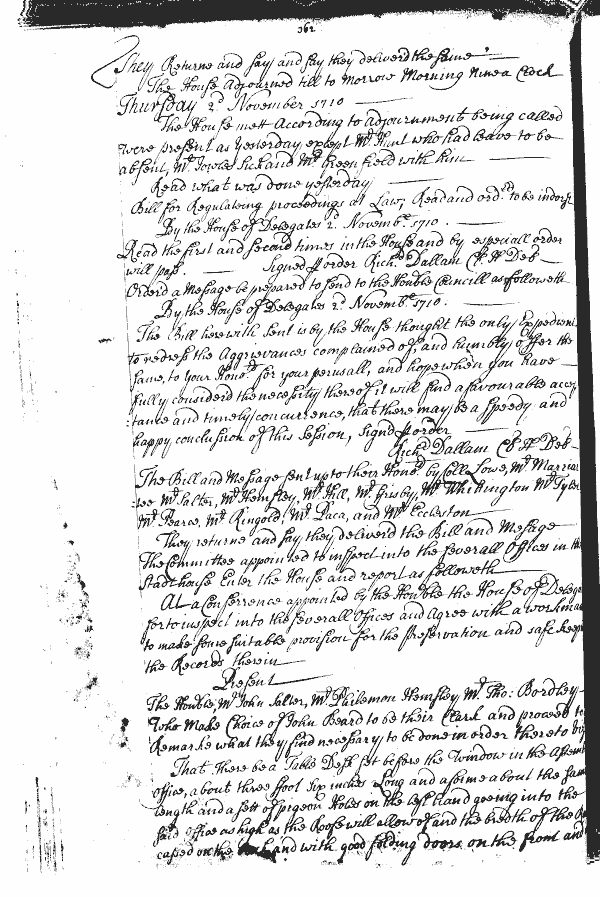 362
They Returne and say and say they deliverd the same
The House Adjourned till to Morrow Morning Nine a Clock
Thursday 2d November 1710
The House mett According to adjournment being called
were present as yesterday except Mr Hunt who had leave to be
absent, Mr Jowles sick and Mr Greenfield with him
Read what was done yesterday
Bill for Regulating proceedings at Law, Read and ordrd to be indors
By the House of Delegates 2d Novembr 1710.
Read the first and second times in the House and by especiall order
will pass. Signed p order Richd Dallam Cl H Del
Orderd a Message be prepared to send to the Honble Councill as followeth
By the House of Delegates 2d Novembr 1710.
The Bill herewith sent is by the House thought the only Expedient
to redress the Aggrievances complained of, and humbly offer the
same, to your Honrs for your perusall, and hope when you have
fully considrd the necessity thereof it will find a favourable accep
tance and timely concurrence, that there may be a speedy and
happy conclusion of this Session, Signd p order
Richd Dallam Cl H Del
The Bill and Message sent up to their Honrs by Collo Lowe, Mr Marriar
tee Mr Salter, Mr Hemsley, Mr Hill, Mr Grisby, Mr Whittington Mr Tyler
Mr Pearce, Mr Ringold, Mr Paca, and Mr Eccleston
They returne and say they deliverd the Bill and Message
The Committee appointed to inspect into the severall Offices in the
Stadthouse Enter the House and report as followeth
At a Conferrence appointed by the Honble the House of Delega
for to inspect into the severall Offices and agree with a workman
to make some suitable provision for the Preservation and safe keepin
the Records therein
Present
The Honble Mr John Salter, Mr Philemon Hemsley Mr Tho: Bordley
Who Make Choice of John Beard to be their Clark and proceed to
Remarke what they find necessary to be done in order thereto
That There be a Table Desk set before the Window in the Assem
office, about three foot Six inches Long and assime about the same
length and a sett of pigeon Holes on the left hand goeing into the
said Office as high as the Roofe will allow of and the bredth of the
cased on the and with good folding doors on the front and